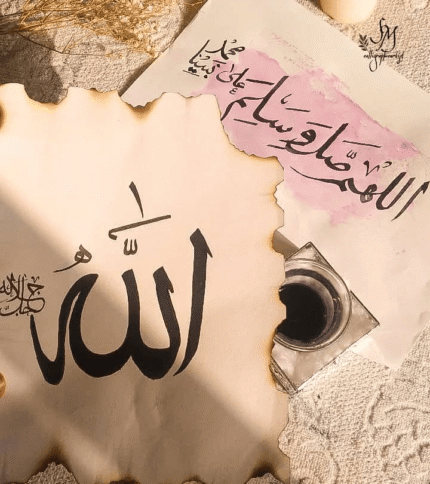 اللهم صل وسلم على نبينا محمد
الله
جل جلاله
SM